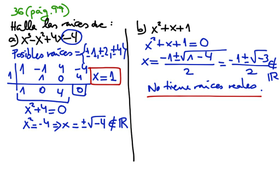 36 (pág. 99)
Halla las raíces de:
a) x³-x²+4x-4
Posibles raíces={±1,±2,±4}
1 -1 4 -4
1 1 0 4
1 0 4 0 x=1
x²+4=0
x²=-4 ⇒ x=±√-4 ∉ ℝ
b) x²+x+1
x²+x+1=0
x=(-1±√1-4)/2=(-1±√-3)/2 ∉ ℝ
No tiene raíces reales.